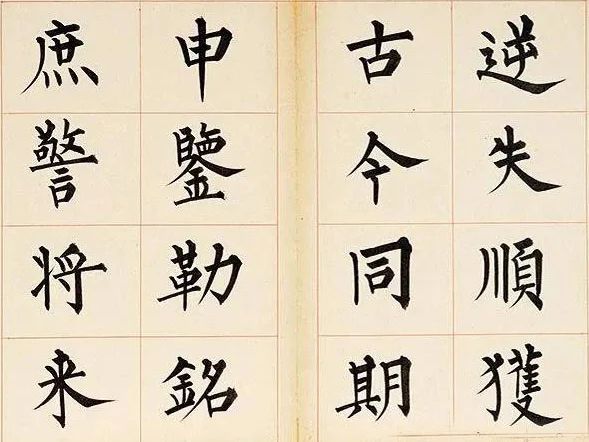 逆失順獲
古今同期
申鑒勒銘
庶警将来